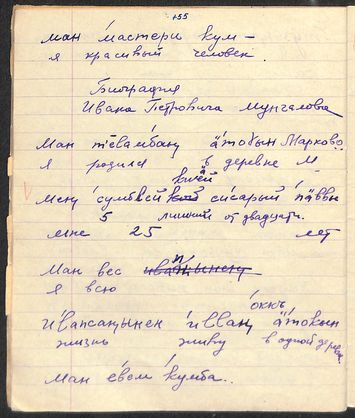 155
ман мастери кум –
я красивый человек.
Биография
Ивана Петровича Мунгалова
Ман тэ̄ва́мбаӈ а̄токын Марково
я родился в деревне М
Мени сумблей си́сарый па̄ввы
5 лишний от двадцати.
мне 25 лет
Ман вес
я всю
оккъ
и́ва̄псаӈынек и́лваӈ а̄токын
жизнь живу в одной дерев.
Ман е́вем ку́мба..